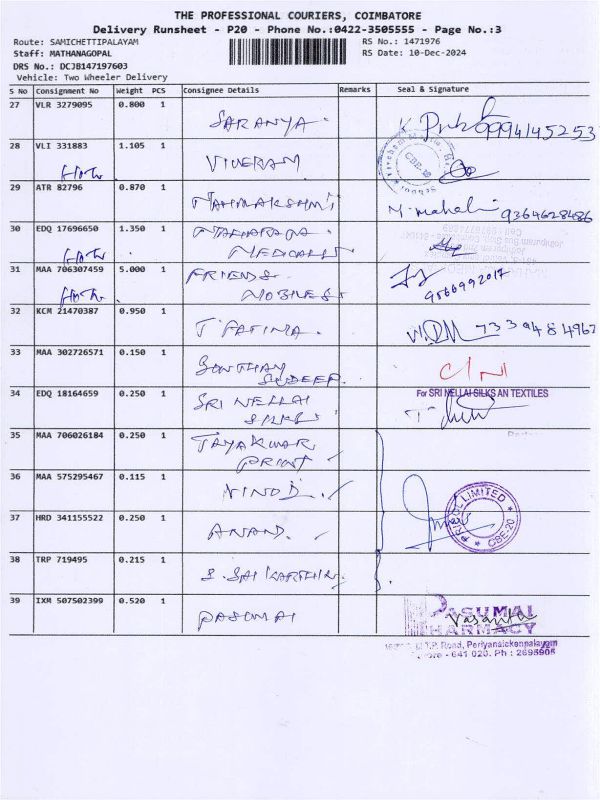 THE PROFESSIONAL COURIERS, COIMBATORE
Delivery Runsheet - P20 - Phone No.:0422-3505555 - Page No.:3
Route: SAMICHETTIPALAYAM
RS No.: 1471976
Staff: MATHANAGOPAL
RS Date: 10-Dec-2024
DRS No.: DCJB147197603
Vehicle: Two Wheeler Delivery
S No Consignment No Weight PCS Consignee Details Remarks Seal & Signature
27 VLR 3279095 0.800 1 SARANYA. 9994145253
28 VLI 331883 1.105 1 VIVERAM
CBE-
29 ATR 82796 0.870 1 MAHALAKSHMI M. mahal 9364628486
30 EDQ 17696650 1.350 1
MEDICALS
31 MAA 706307459 5.000 1 FRIENDS
MOBILES 9566992017
32 KCM 21470387 0.950 1 T FATIMA. 733948 4967
33 MAA 302726571 0.150 1
34 EDQ 18164659 0.250 1 SRI NELLAI
SILKS
For SRI NELLAI SILKS AN TEXTILES
35 MAA 706026184 0.250 1 JAYAKUMAR
PRINT
36 MAA 575295467 0.115 1 VINOD.
37 HRD 341155522 0.250 1 ANAND.
LIMITED
CBE-20
38 TRP 719495 0.215 1 S. SAI KARTHIK
39 IXM 507502399 0.520 1 PASUMAI
PASUMAI
PHARMACY
Vasanth
M.T.P. Road, Periyanaickenpalayam
ore - 641 020. Ph : 2695905